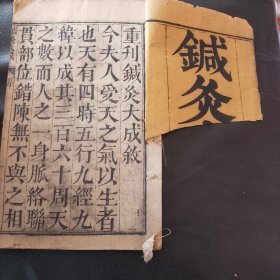 重刋鍼灸大成敘
今夫人受天之氣以生者
也天有四時五行九經九
緯以成其三百六十周天
之數而人之一身脈絡聯
貫部位錯陳無不與之相
鍼灸